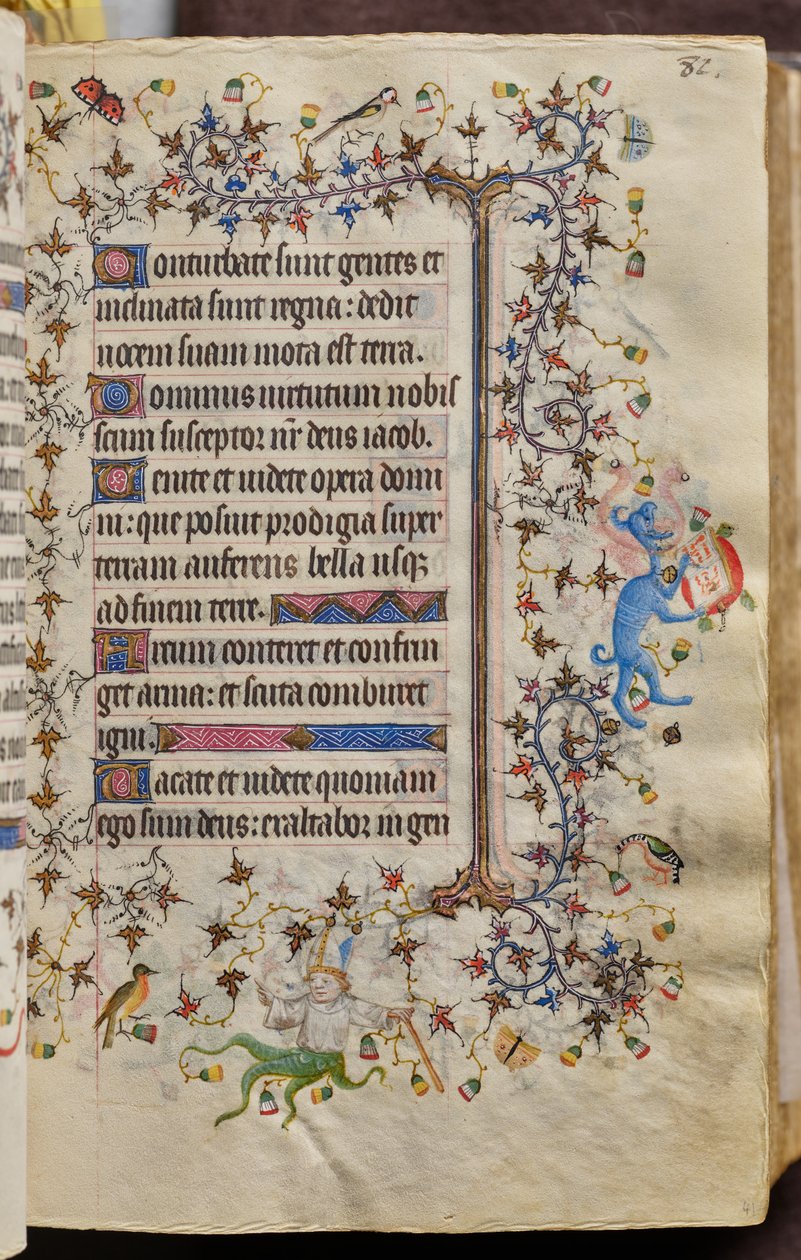 82.
Conturbate sunt gentes et
inclinata sunt regna: dedit
uocem suam mota est terra.
Dominus uirtutum nobis
cum susceptor nr̄ deus iacob.
Uenite et uidete opera domi
ni: que posuit prodigia super
terram auferens bella usq;
ad finem terre.
Arcum conteret et confrin
get arma: et scuta comburet
igni.
Uacate et uidete quoniam
ego sum deus: exaltabor in gen
41